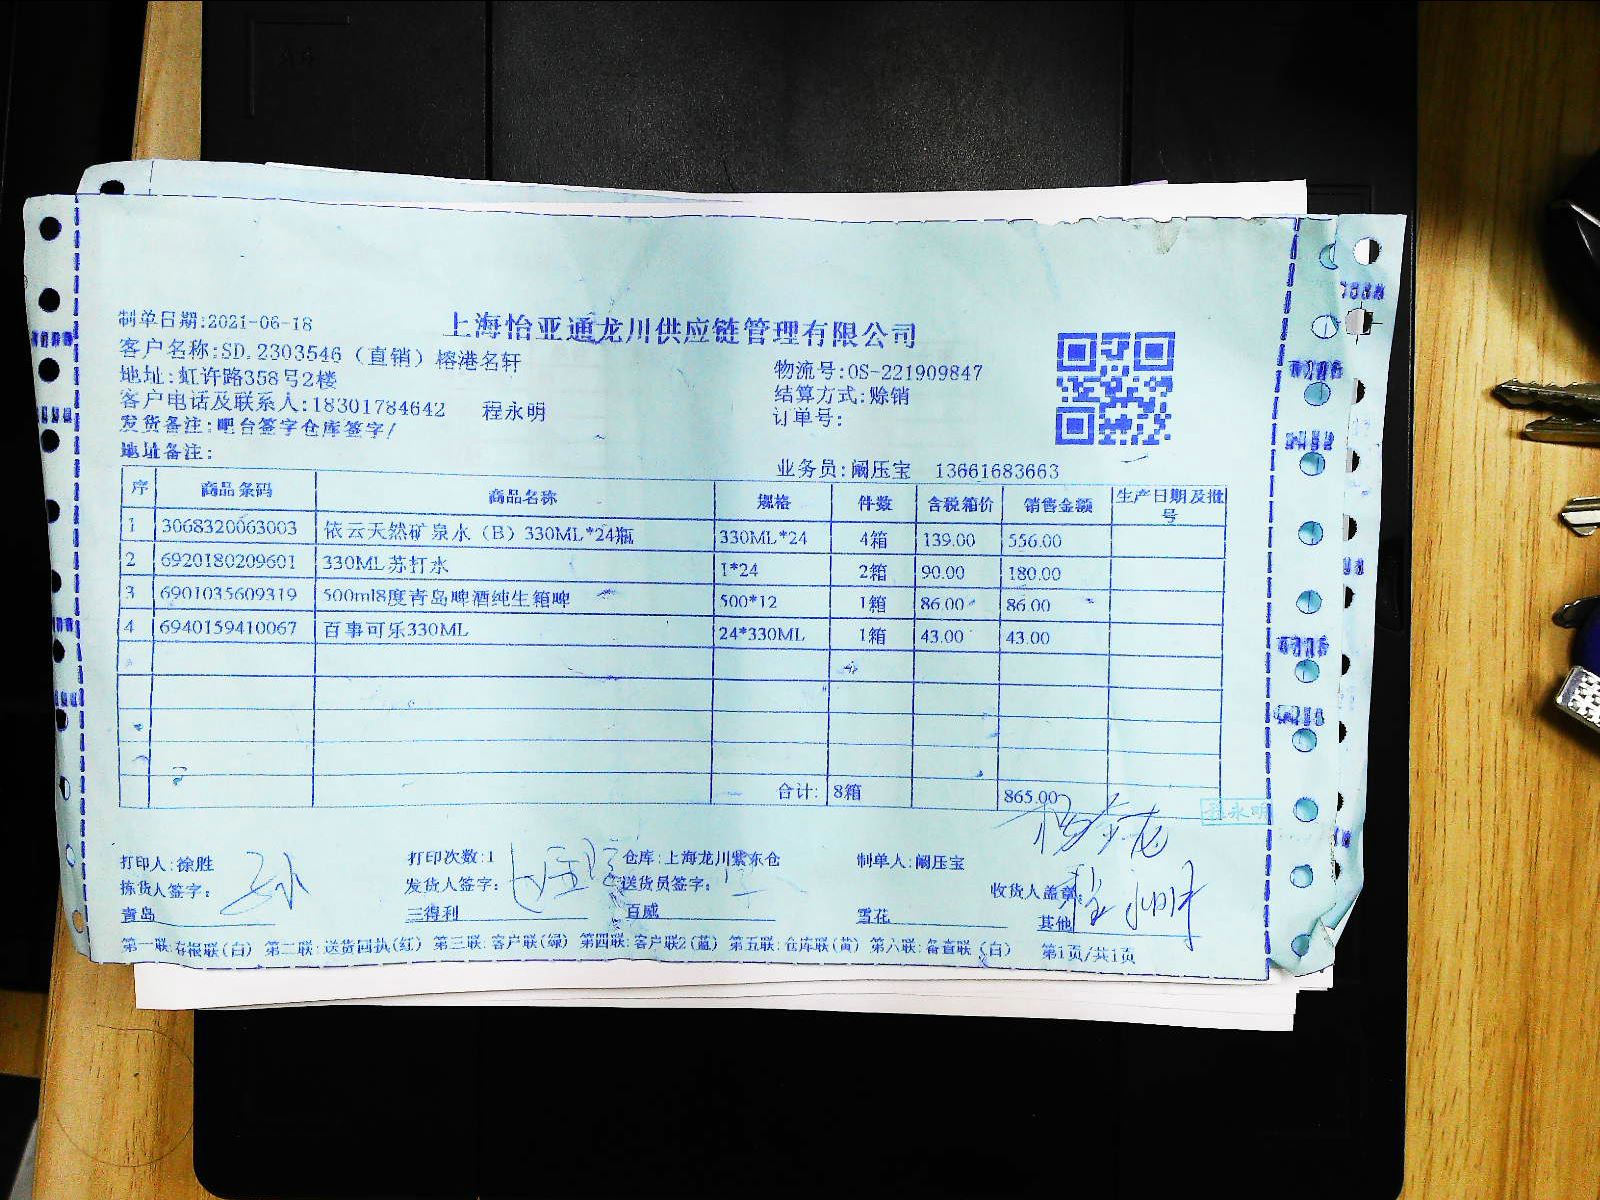 上海怡亚通龙川供应链管理有限公司
制单日期:2021-06-18
客户名称:SD.2303546（直销）榕港名轩
物流号:OS-221909847
地址:虹许路358号2楼
结算方式:赊销
客户电话及联系人:18301784642 程永明
订单号:
发货备注:吧台签字仓库签字/
地址备注:
业务员:阚压宝 13661683663
序 商品条码 商品名称 规格 件数 含税箱价 销售金额 生产日期及批号
1 3068320063003 依云天然矿泉水（B）330ML*24瓶 330ML*24 4箱 139.00 556.00
2 6920180209601 330ML苏打水 1*24 2箱 90.00 180.00
3 6901035609319 500ml8度青岛啤酒纯生箱啤 500*12 1箱 86.00 86.00
4 6940159410067 百事可乐330ML 24*330ML 1箱 43.00 43.00
合计: 8箱 865.00
程永明
打印人:徐胜 打印次数:1 仓库:上海龙川紫东仓 制单人:阚压宝
拣货人签字: 发货人签字: 送货员签字: 收货人盖章:
程永明
青岛 三得利 百威 雪花 其他
第一联:存根联(白) 第二联:送货回执(红) 第三联:客户联(绿) 第四联:客户联2(蓝) 第五联:仓库联(黄) 第六联:备查联(白) 第1页/共1页